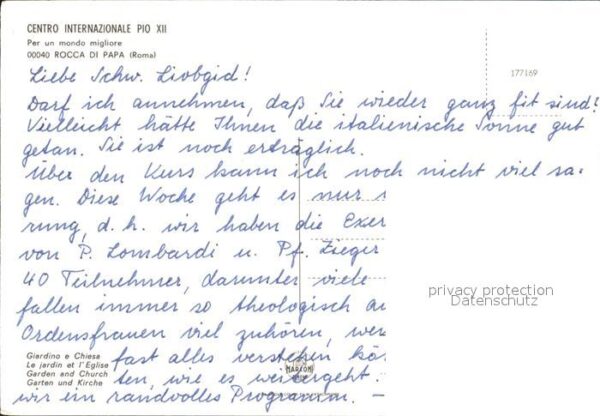 CENTRO INTERNAZIONALE PIO XII
Per un mondo migliore
00040 ROCCA DI PAPA (Roma)
177169
Liebe Schw. Liobgid!
Darf ich annehmen, daß Sie wieder ganz fit sind?
Vielleicht hätte Ihnen die italienische Sonne gut
getan. Sie ist noch erträglich.
Über den Kurs kann ich noch nicht viel sa-
gen. Diese Woche geht es nur
rung, d. h. wir haben die Exer
von P. Lombardi u. Pf. Zieger
40 Teilnehmer, darunter viele
fallen immer so theologisch au
Ordensfrauen viel zuhören, wer
fast alles verstehen kö
ten, wie es weitergeht.
wir ein randvolles Programm. –
Giardino e Chiesa
Le jardin et l'Eglise
Garden and Church
Garten und Kirche
MARCONI
privacy protection
Datenschutz